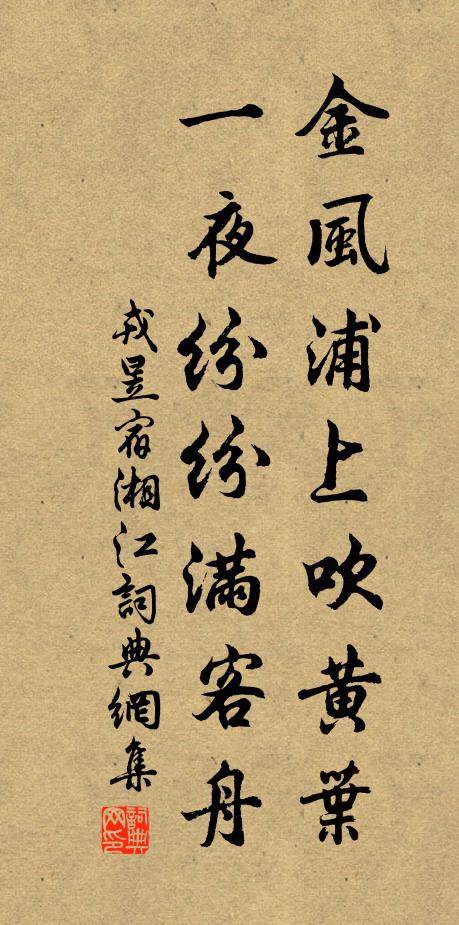 金風浦上吹黄葉
一夜紛紛滿客舟
戎昱宿湘江詞典網集
詞典网印